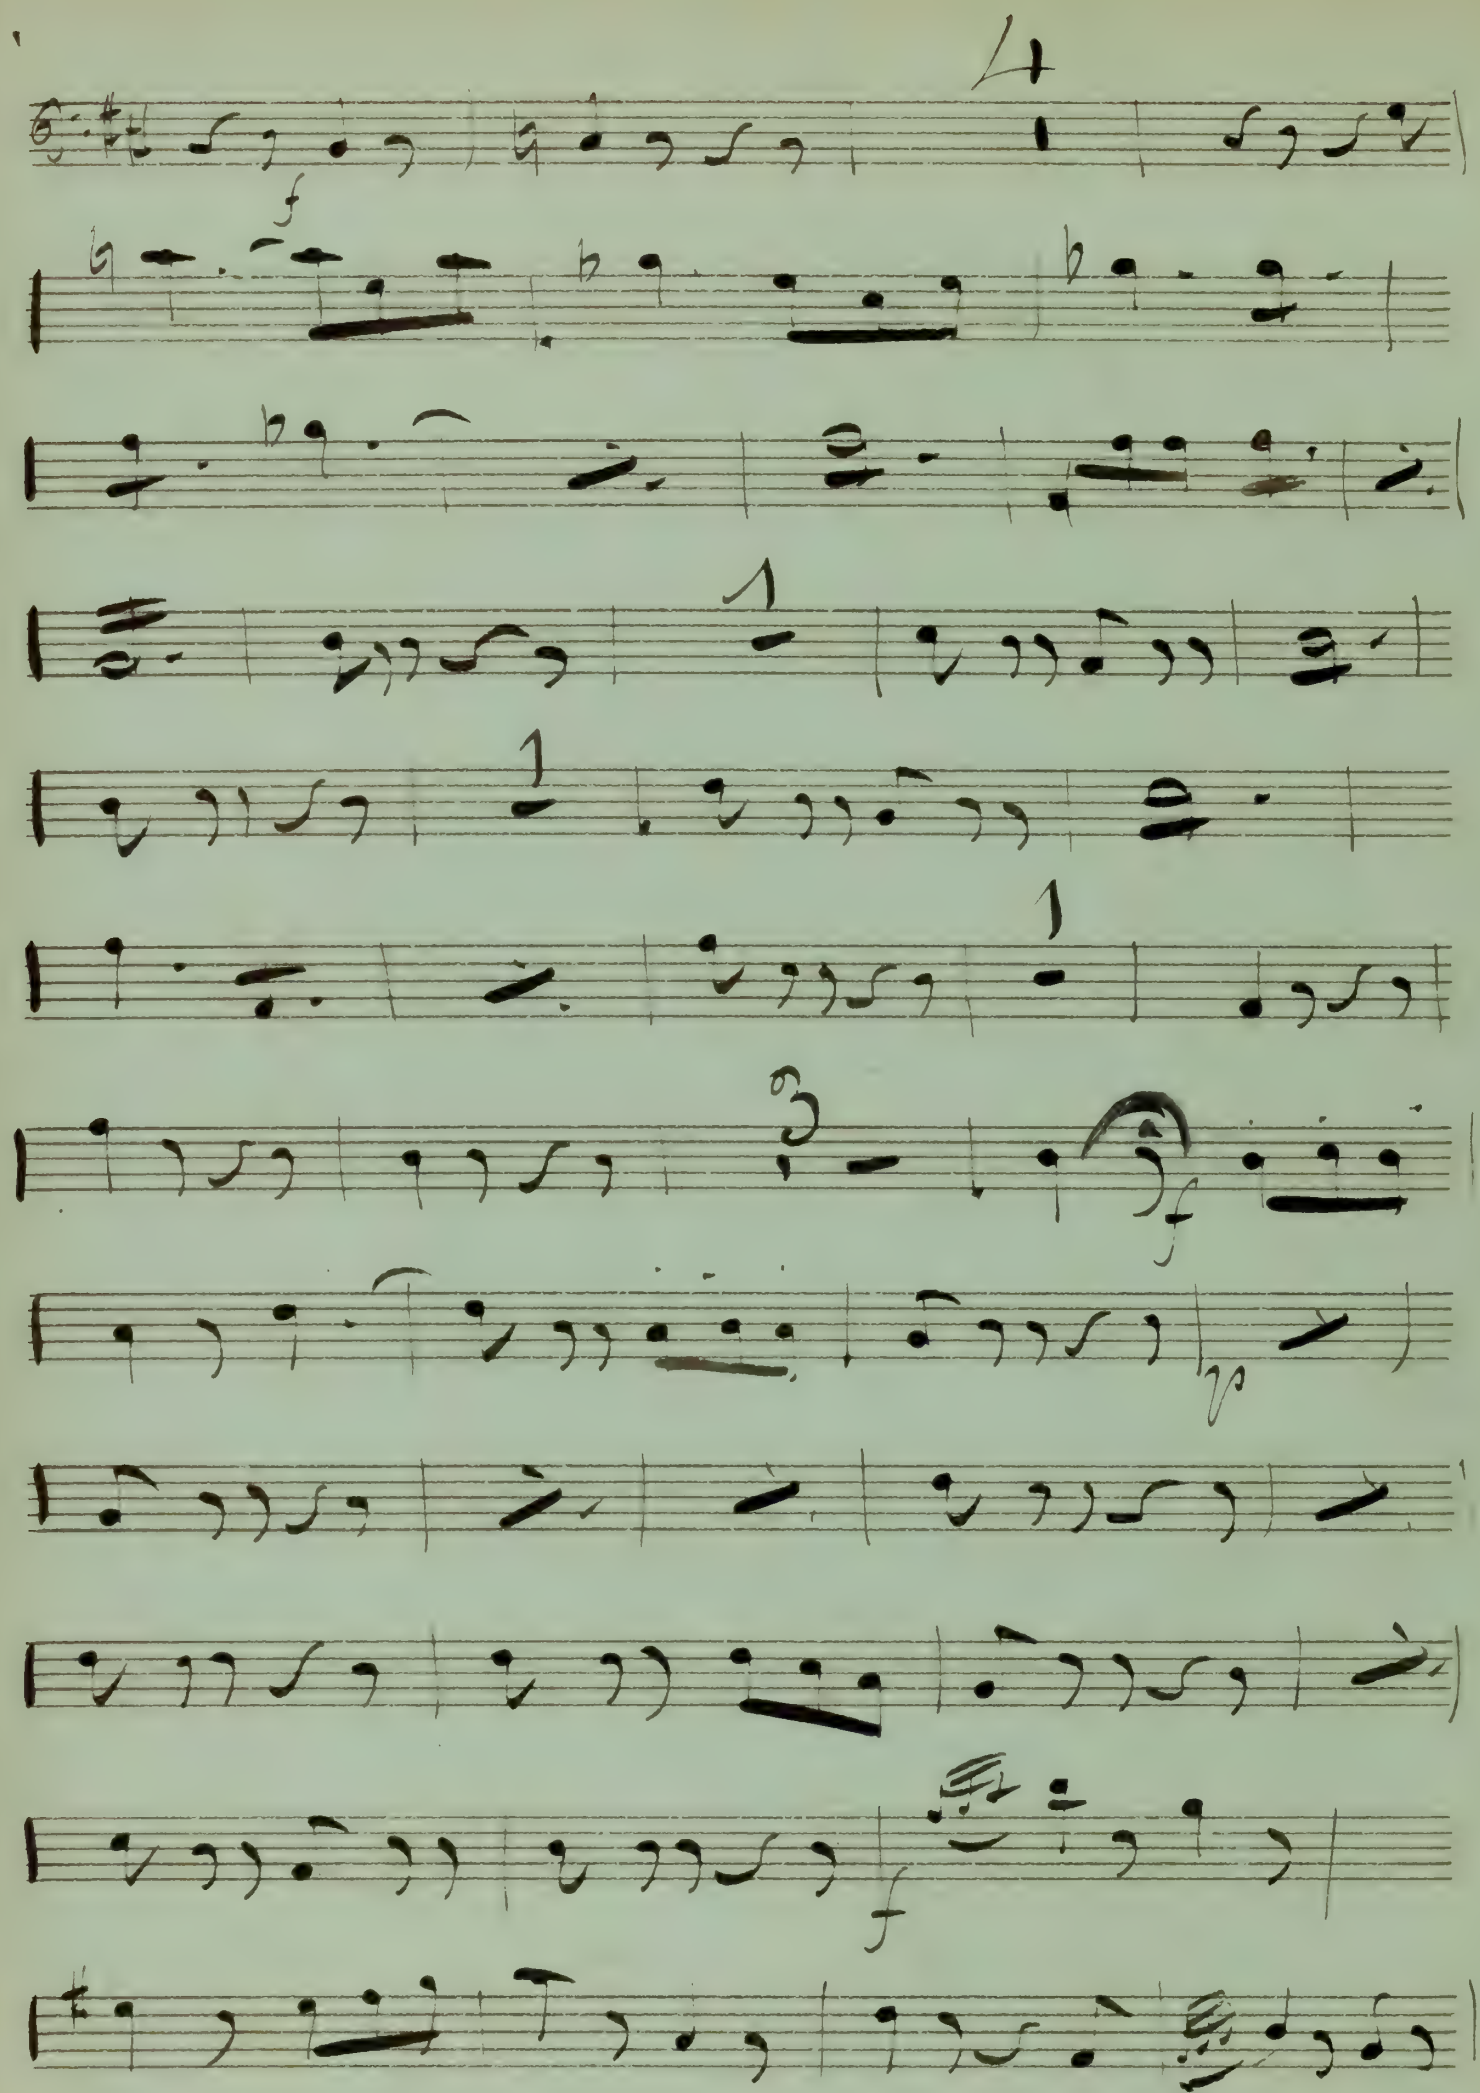 4
f
1
1
1
3
f
p
f